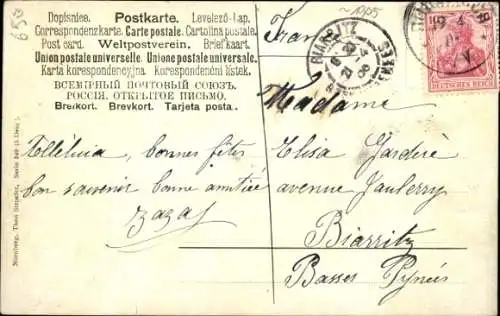 650
Dopisnice. Postkarte. Levelező-Lap.
Correspondenzkarte. Carte postale. Cartolina postale.
Post card. Weltpostverein. Briefkaart.
Union postale universelle. Unione postale universale.
Karta korespondencyjna. Korespondenční lístek.
ВСЕМІРНЫЙ ПОЧТОВЫЙ СОЮЗЪ.
РОССІЯ. ОТКРЫТОЕ ПИСЬМО.
Brefkort. Brevkort. Tarjeta posta.
~1905
BIARRITZ
21
19 4
10
DEUTSCHES REICH
Madame
Elisa
avenue Jaulerry
Biarritz
Basses Pyrénées
Alléluia, bonnes fêtes
bon souvenir bonne amitiée
Nürnberg, Theo Stroefer, Serie